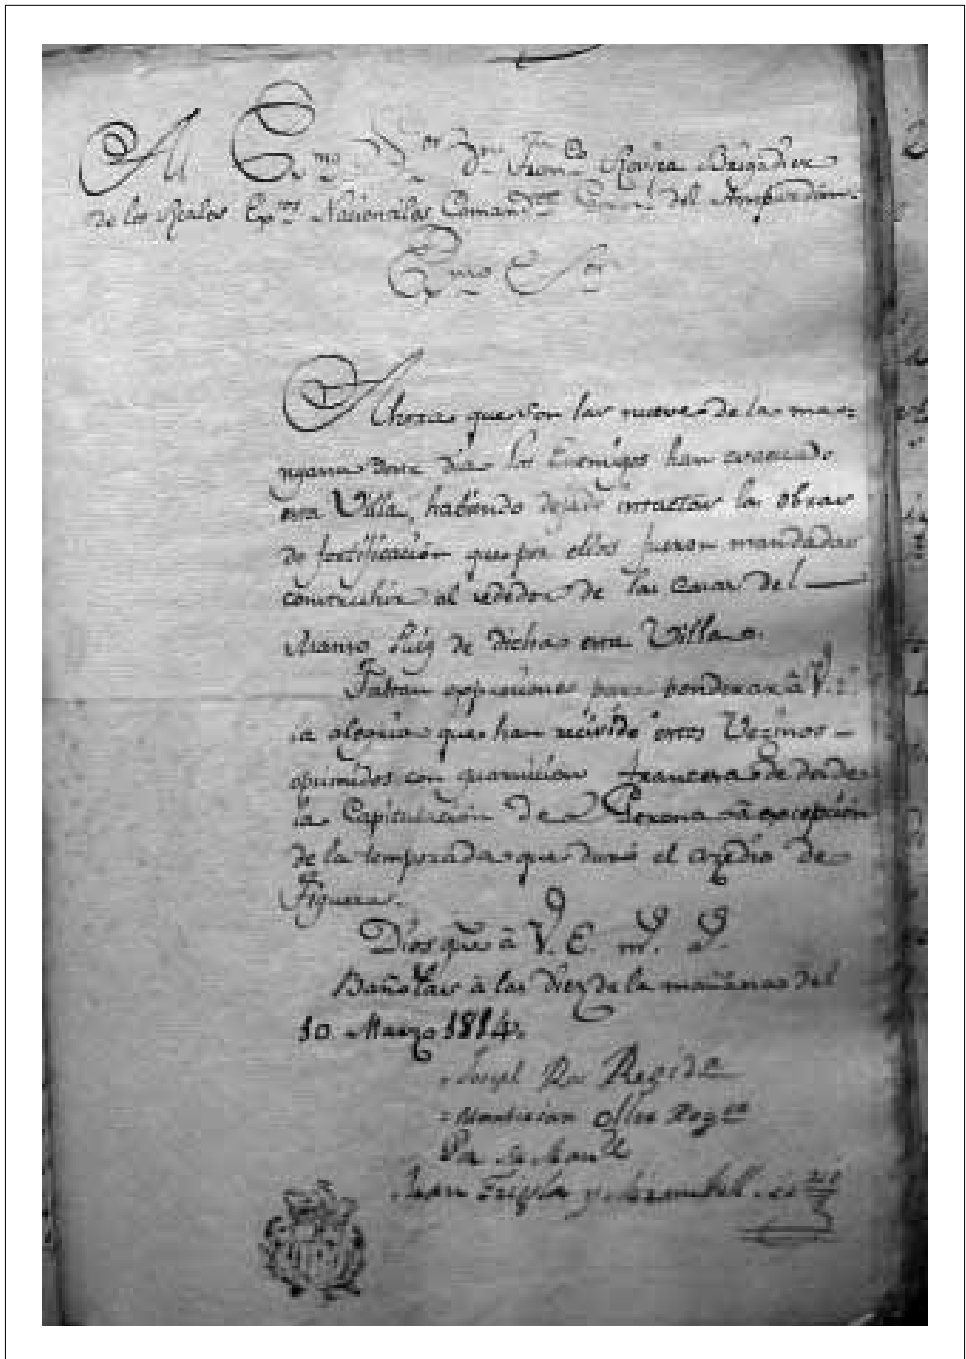 Al
Dn. Franco. Rovira Brigadier
de los Reales Exercitos Nacionales Comandte. Genral. del Ampurdan.
Exmo Sor
Ahora que son las nueve de la ma=
nyana deste dia los Enemigos han evacuado
esta Villa, habiendo dejado intactas las obras
de fortificacion que por ellos fueron mandadas
construhir al rededor de las casas del
Manso Puig de dicha esta Villa.
Faltan expresiones para ponderar â V. E.
la alegria que han recivido estos Vezinos
oprimidos con guarnicion francesa desde
la Capitulacion de Gerona â excepcion
de la temporada que durò el azedio de
Figueras.
Dios gue â V. E. ms. as.
Bañolas à las diez de la mañana del
10 Marzo 1814.
Josepl Ros Regidor
Oller Regor
Por su Mande
Juan srio